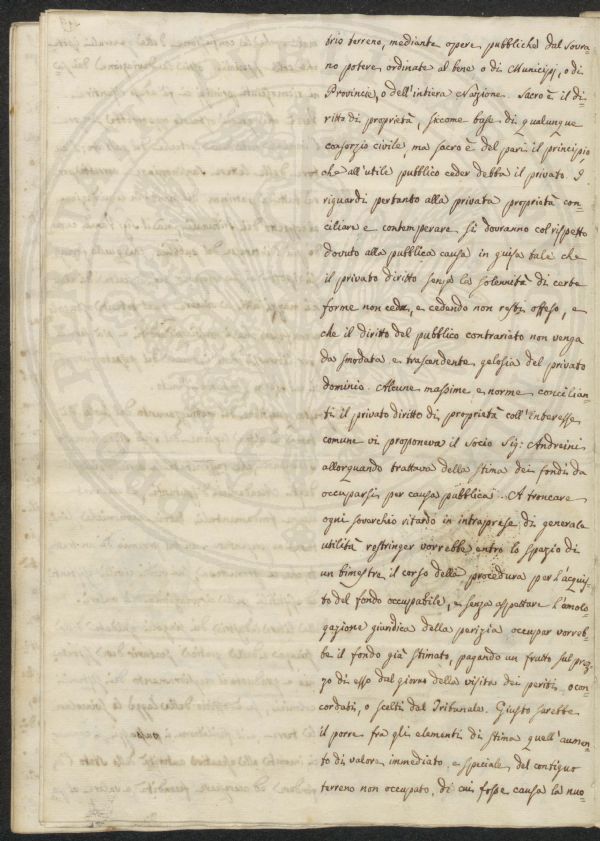 brio terreno, mediante opere pubbliche dal Sovra-
no potere ordinate al bene o di Municipj, o di
Provincie, o dell'intiera Nazione. Sacro è il di-
ritto di proprietà, siccome base di qualunque
consorzio civile, ma sacro è del pari il principio
che all'utile pubblico ceder debba il privato. I
riguardi pertanto alla privata proprietà con-
ciliare e contemperare si dovranno col rispetto
dovuto alla pubblica causa in guisa tale che
il privato diritto senza la solennità di certe
forme non ceda, e cedendo non resti offeso, e
che il diritto del pubblico contrariato non venga
da smodata e trascendente gelosia del privato
dominio. Alcune massime e norme concilian-
ti il privato diritto di proprietà coll'interesse
comune vi proponeva il Socio Sig: Andreini
allorquando trattava della stima dei fondi da
occuparsi per causa pubblica. A troncare
ogni soverchio ritardo in intraprese di generale
utilità restringer vorrebbe entro lo spazio di
un bimestre il corso della procedura per l'acquis-
to del fondo occupabile, e senza aspettare l'amolo-
gazione giuridica della perizia occupar vorreb-
be il fondo già stimato, pagando un frutto sul prez-
zo di esso dal giorno della visita dei periti o con-
cordati, o scelti dal Tribunale. Giusto sarebbe
il porre fra gli elementi di stima quell'aumen-
to di valore immediato, e speciale del contiguo
terreno non occupato, di cui fosse causa la nuo-